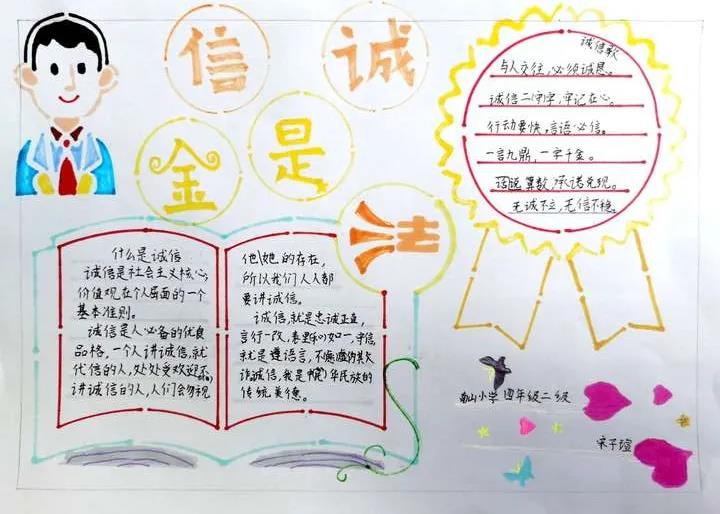 诚信
是金
法
什么是诚信
诚信是社会主义核心
价值观在个人层面的一个
基本准则。
诚信是人必备的优良
品格,一个人讲诚信,就
代信的人,处处受欢迎不
讲诚信的人,人们会忽视
他\她的存在,
所以我们人人都
要讲诚信。
诚信,就是忠诚正直,
言行一致,表里如一,守信,
就是遵语言,不
诈诚信,我是中华民族的
传统美德。
诚信歌
与人交往,必须诚恳。
诚信二字,牢记在心。
行动要快,言语必信。
一言九鼎,一字千金。
说算数,承诺兑现。
无诚不立,无信不稳。
南山小学四年级二级
宋子瑄